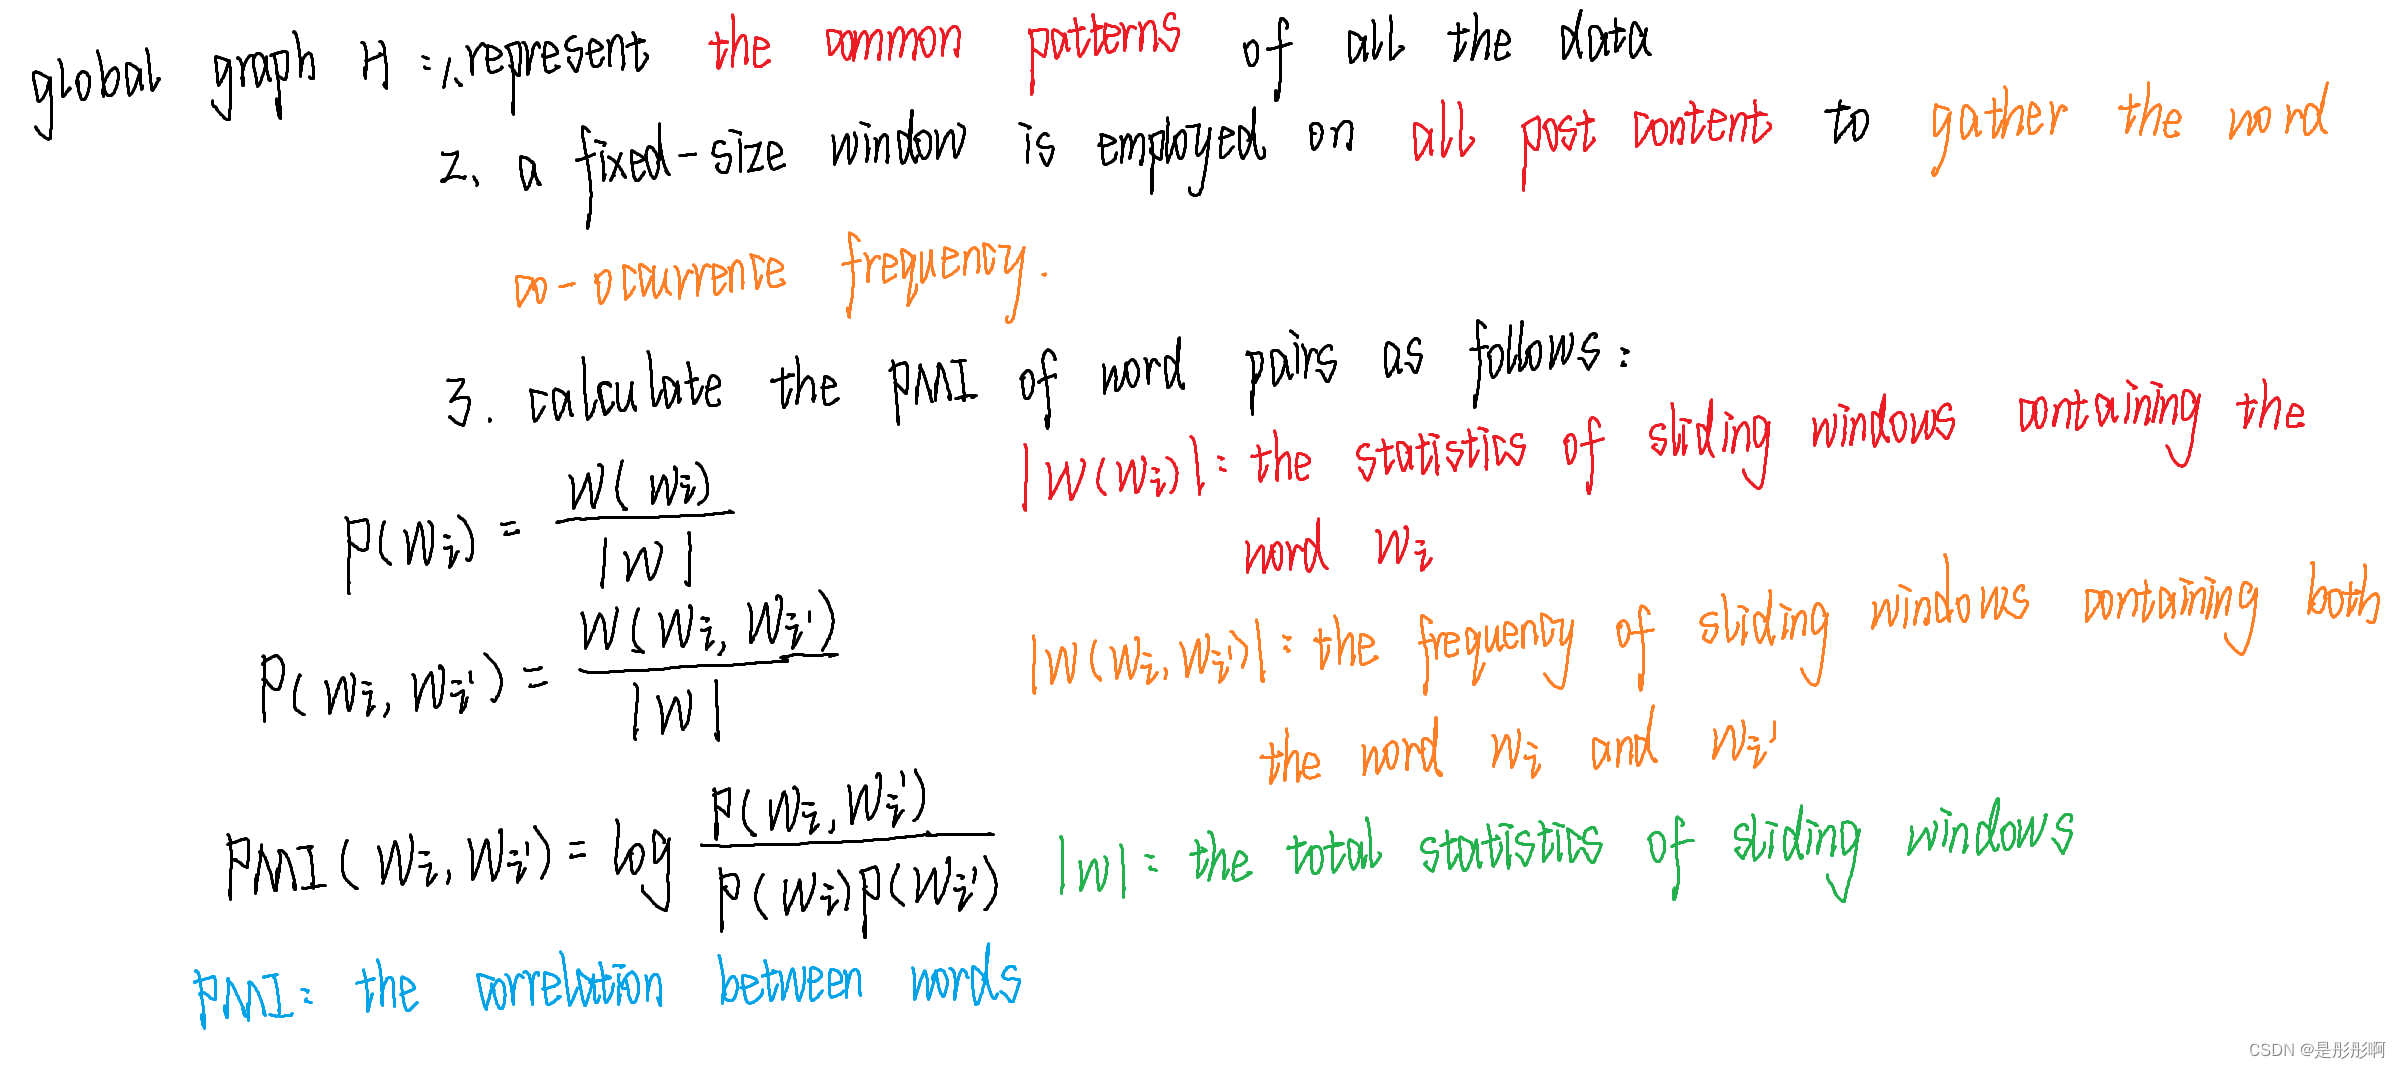 global graph H : 1. represent the common patterns of all the data
2. a fixed-size window is employed on all post content to gather the word
co-occurrence frequency.
3. calculate the PMI of word pairs as follows:
P(Wi) = W(Wi) / |W|
|W(Wi)|: the statistics of sliding windows containing the
word Wi
P(Wi, Wi') = W(Wi, Wi') / |W|
|W(Wi, Wi')|: the frequency of sliding windows containing both
the word Wi and Wi'
PMI(Wi, Wi') = log P(Wi, Wi') / P(Wi)P(Wi')
|W|: the total statistics of sliding windows
PMI: the correlation between words
CSDN @是彤彤啊